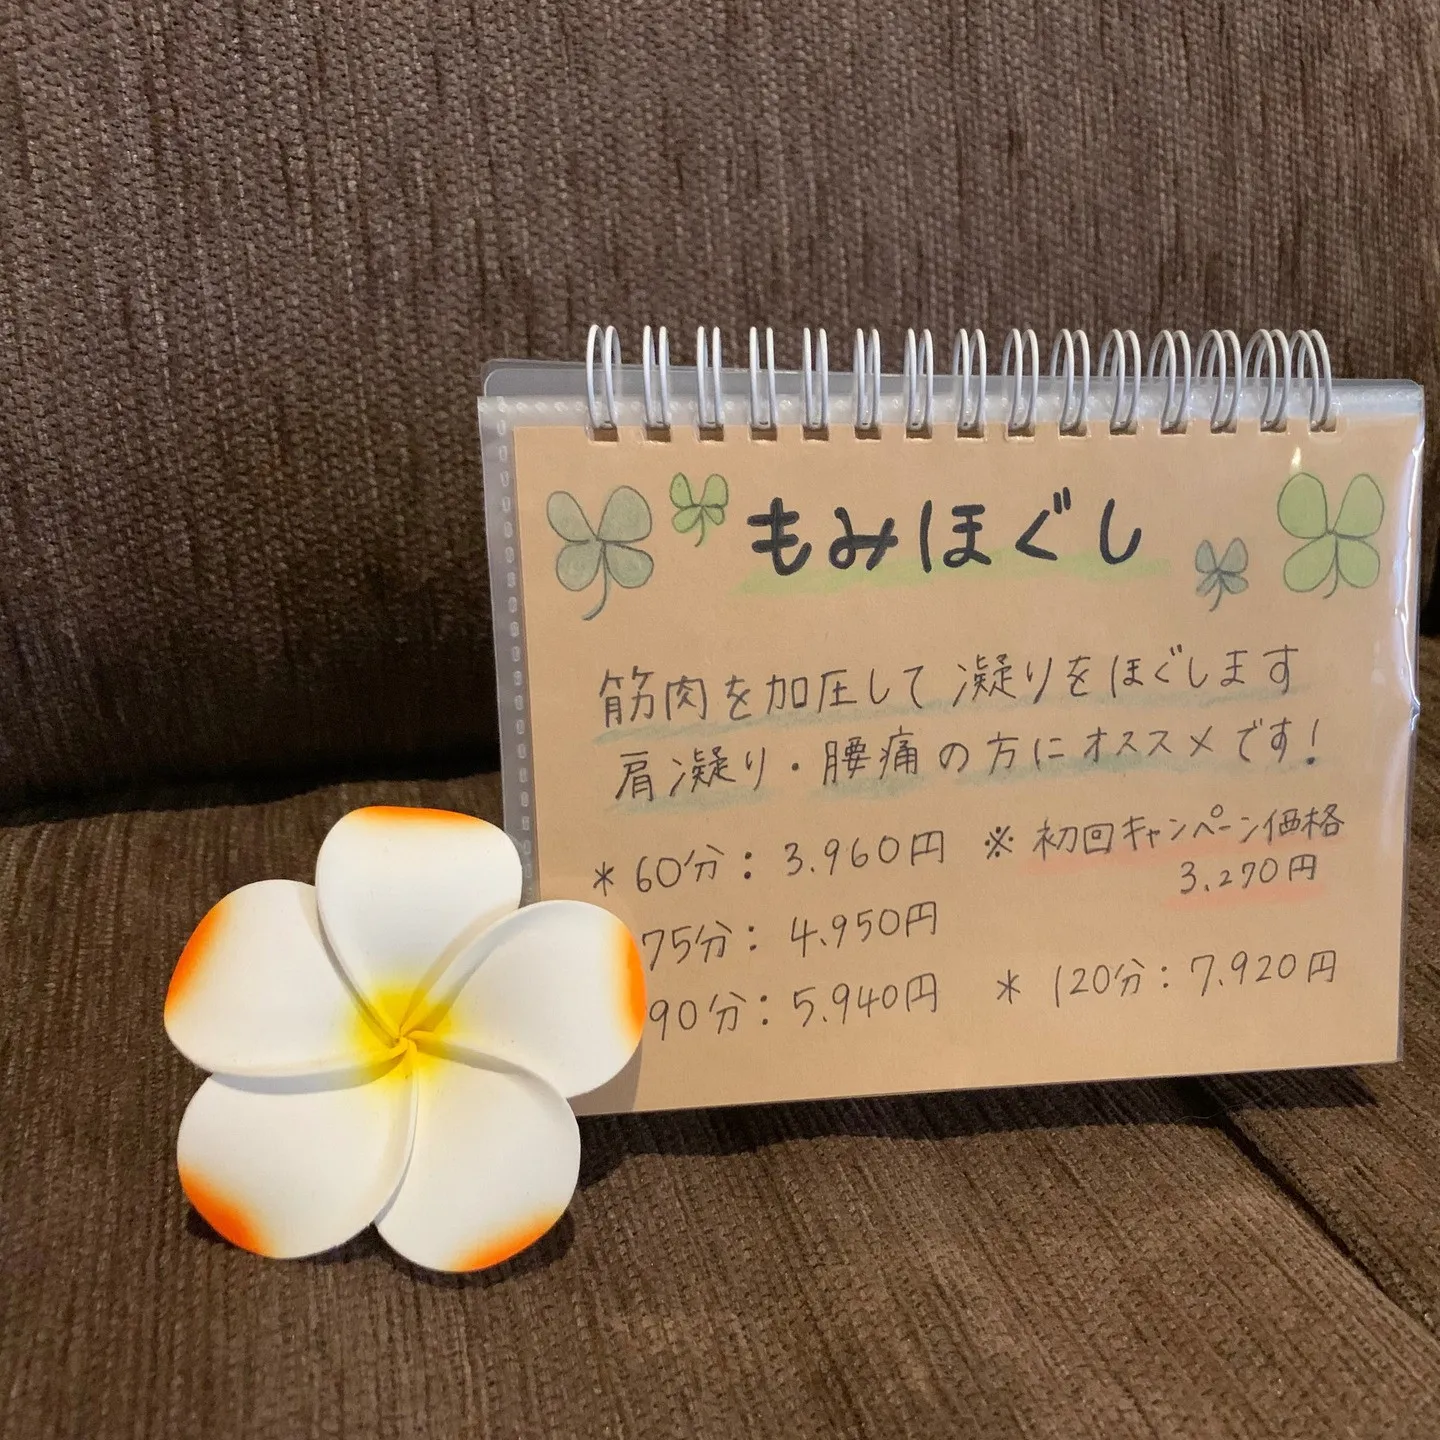 もみほぐし
筋肉を加圧して凝りをほぐします
肩凝り・腰痛の方にオススメです!
* 60分: 3.960円 ※ 初回キャンペーン価格
3.270円
75分: 4.950円
90分: 5.940円 * 120分: 7.920円